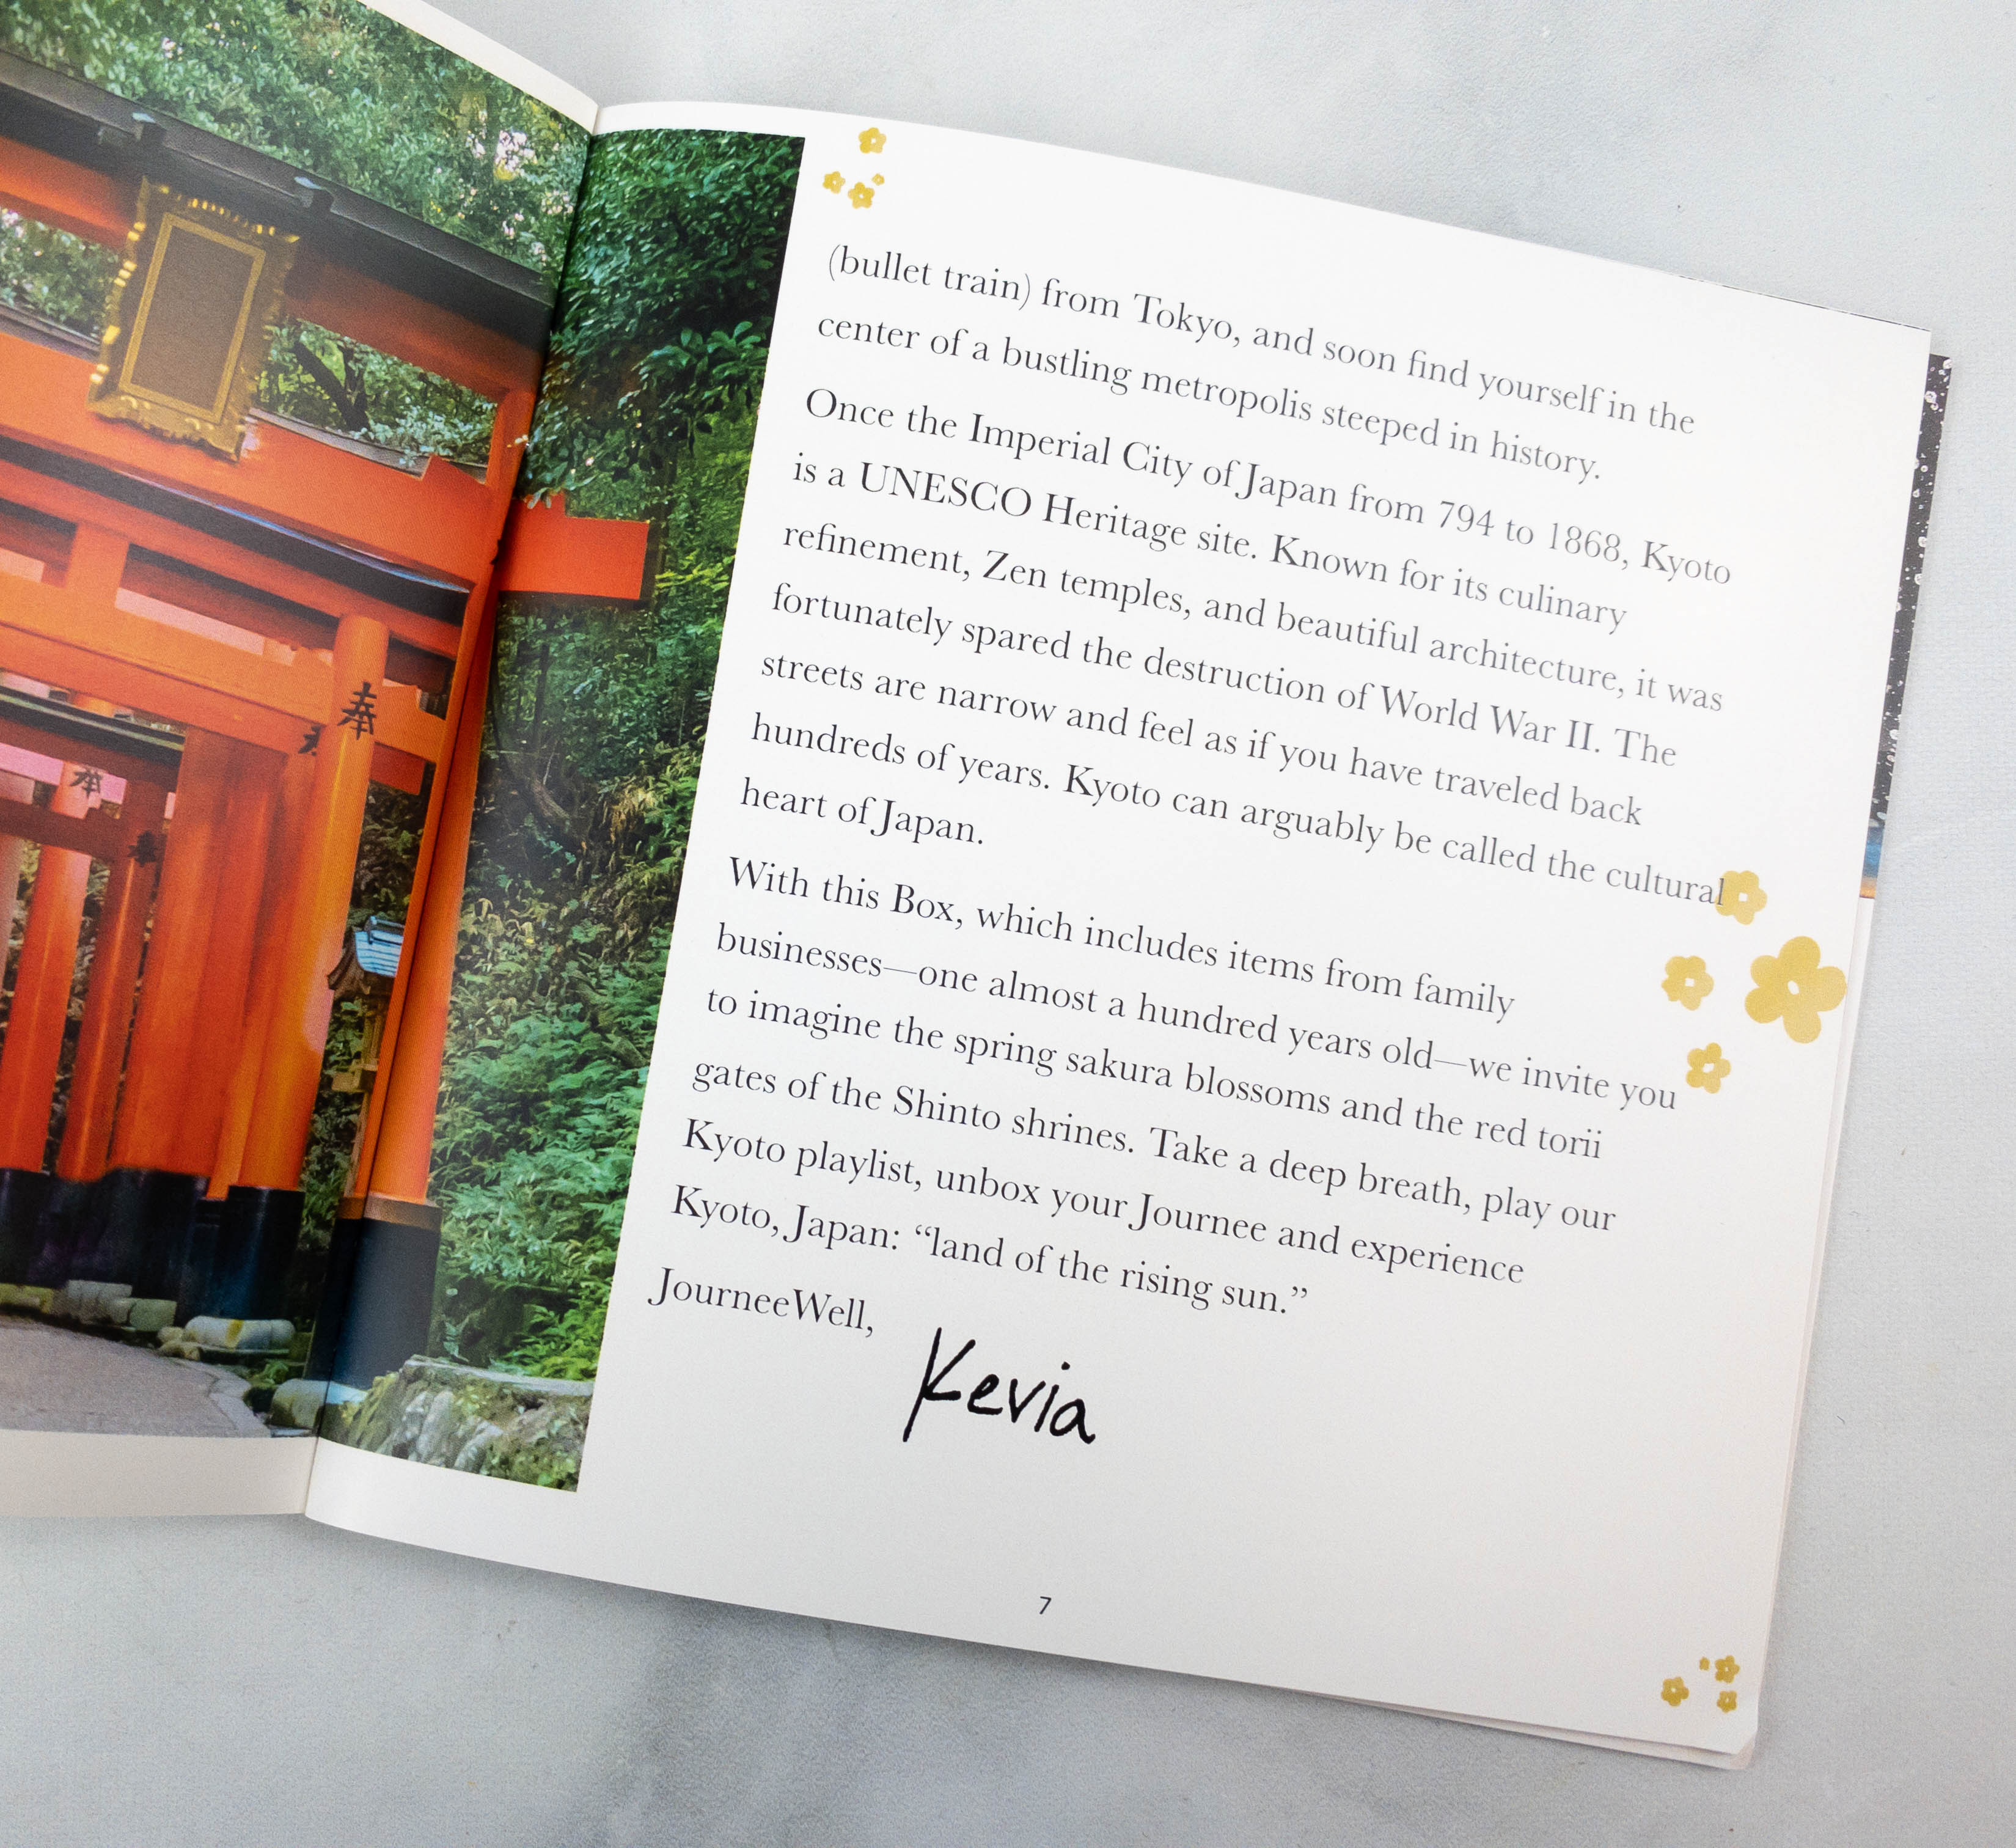 奉
奉
(bullet train) from Tokyo, and soon find yourself in the
center of a bustling metropolis steeped in history.
Once the Imperial City of Japan from 794 to 1868, Kyoto
is a UNESCO Heritage site. Known for its culinary
refinement, Zen temples, and beautiful architecture, it was
fortunately spared the destruction of World War II. The
streets are narrow and feel as if you have traveled back
hundreds of years. Kyoto can arguably be called the cultural
heart of Japan.
With this Box, which includes items from family
businesses—one almost a hundred years old—we invite you
to imagine the spring sakura blossoms and the red torii
gates of the Shinto shrines. Take a deep breath, play our
Kyoto playlist, unbox your Journee and experience
Kyoto, Japan: “land of the rising sun.”
JourneeWell,
Kevia
7